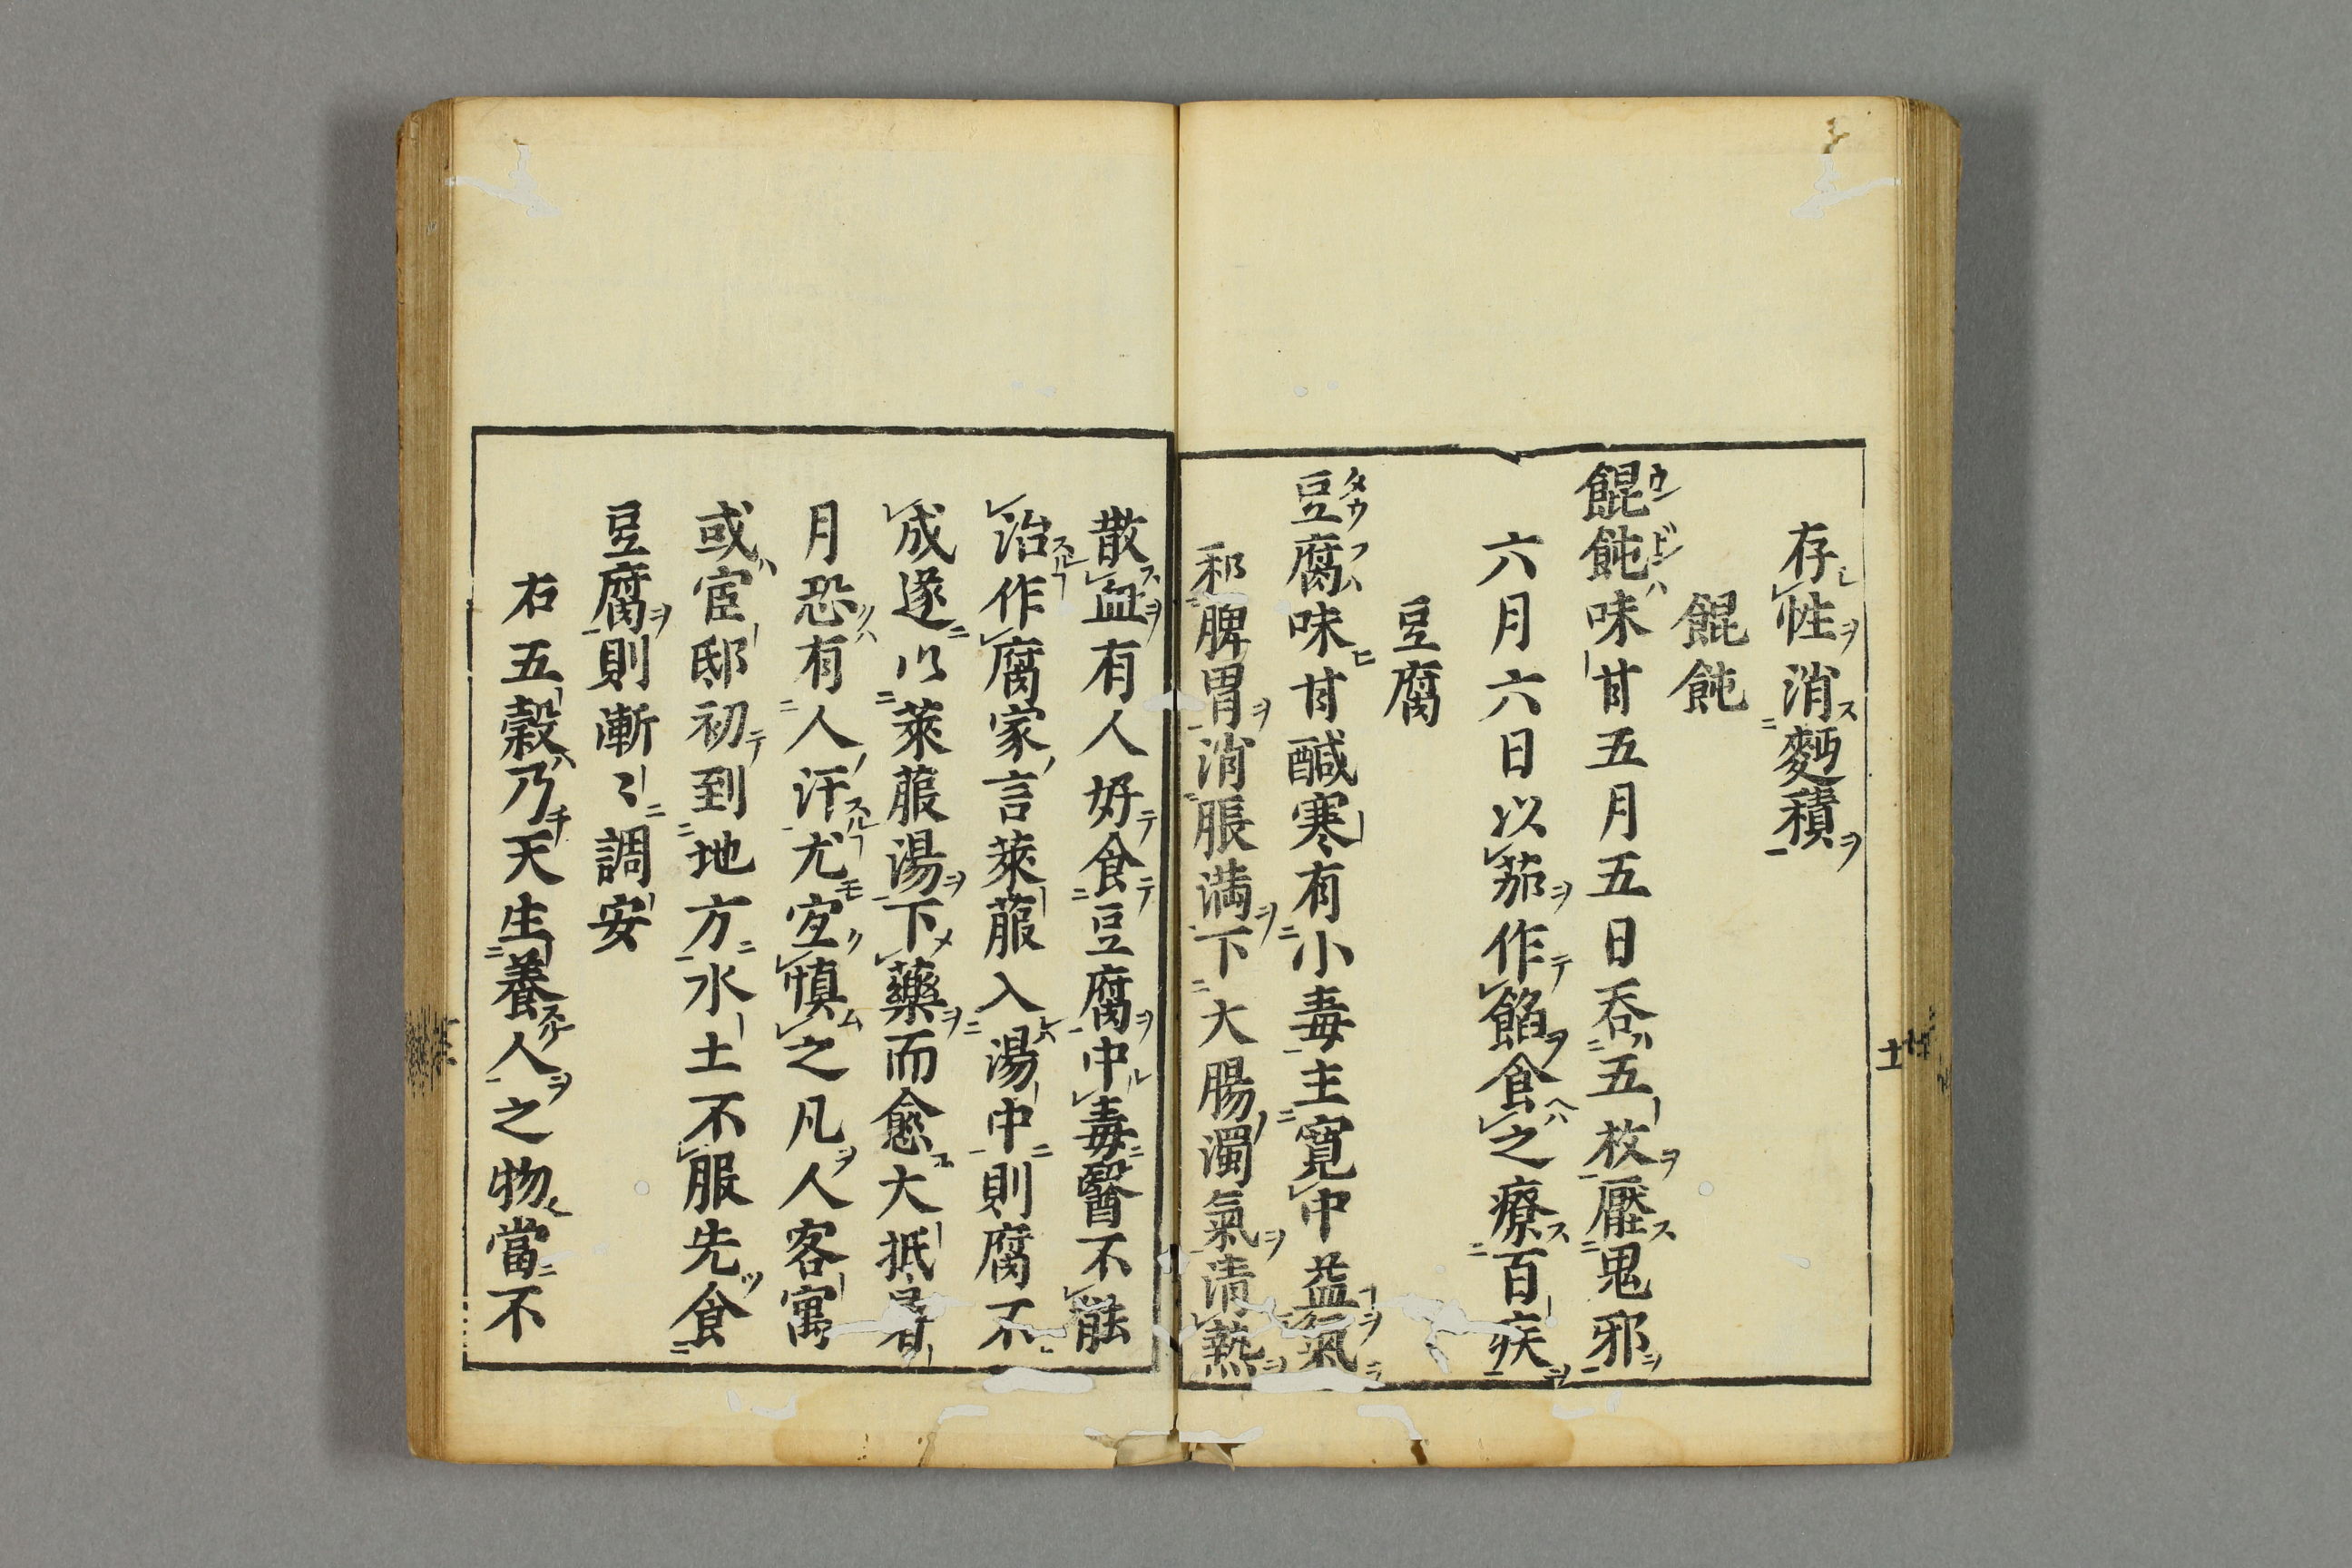 存性消麪積
餛飩
餛飩味甘五月五日吞五枚壓鬼邪
六月六日以茄作餡食之療百疾
豆腐
豆腐味甘醎寒有小毒主寛中益氣
和脾胃消脹満下大腸濁氣清熱
散血有人好食豆腐中毒醫不能
治作腐家言萊菔入湯中則腐不
成遂以萊菔湯下藥而愈大抵暑
月恐有人汗尤宜慎之凡人客寓
或宦邸初到地方水土不服先食
豆腐則漸〻調安
右五穀乃天生養人之物當不